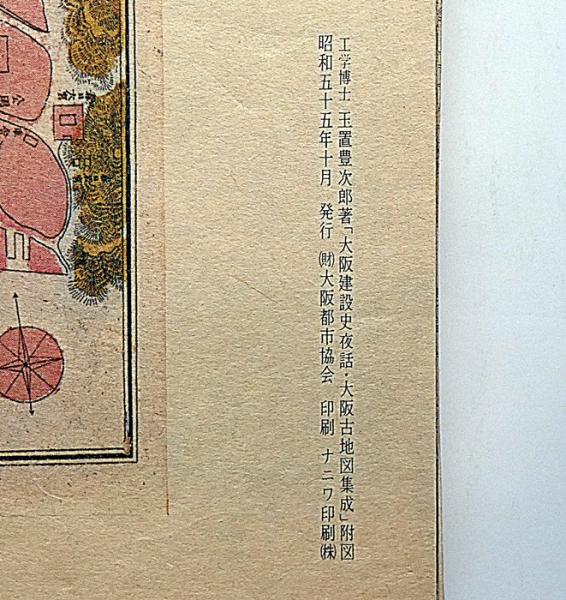 工学博士 玉置豊次郎著「大阪建設史夜話・大阪古地図集成」附図
昭和五十五年十月 発行 ㈶大阪都市協会 印刷 ナニワ印刷㈱